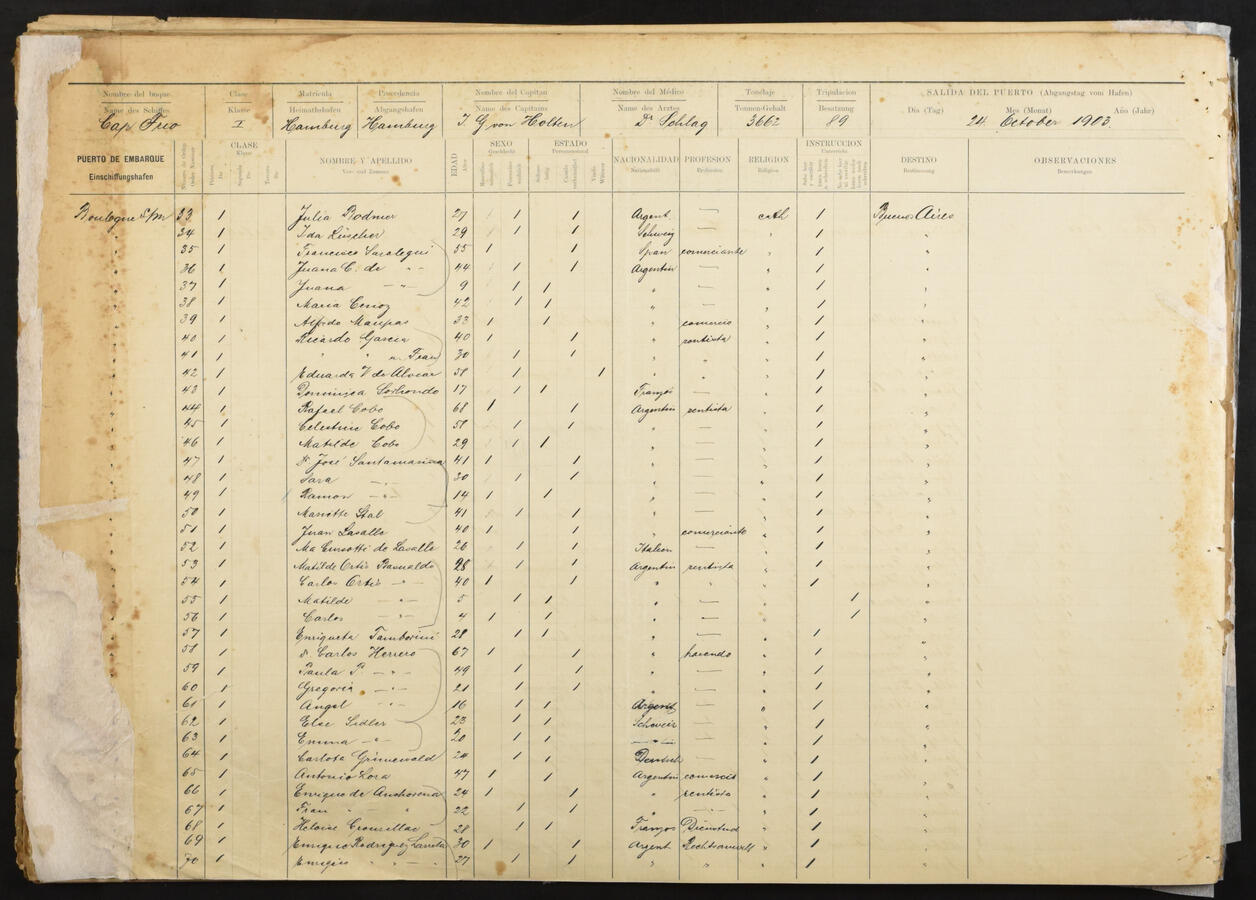 Nombre del buque Clase Matrícula Procedencia Nombre del Capitan Nombre del Médico Tonelaje Tripulacion SALIDA DEL PUERTO (Abgangstag vom Hafen)
Name des Schiffes Klasse Heimathshafen Abgangshafen Name des Capitains Name des Arztes Tonnen-Gehalt Besatzung Dia (Tag) Mes (Monat) Año (Jahr)
Cap Frio I Hamburg Hamburg J. G von Holten Dr Schlag 3662 89 24. October 1903.
PUERTO DE EMBARQUE CLASE NOMBRE Y APELLIDO EDAD SEXO ESTADO NACIONALIDAD PROFESION RELIGION INSTRUCCION DESTINO OBSERVACIONES
Einschiffungshafen Klasse Vor- und Zuname Alter Geschlecht Personenstand Nationalität Profession Religion Unterricht Bestimmung Bemerkungen
Boulogne S/m 33 1 Julia Rodmer 27 1 1 Argent. — cath 1 Buenos Aires
" 34 1 Ida Lüscher 29 1 1 Schweiz — " 1 "
" 35 1 Francisco Saralegui 55 1 1 Span comerciante " 1 "
" 36 1 Juana E. de " " 44 1 1 Argentin — " 1 "
" 37 1 Juana — " — 9 1 1 " — " 1 "
" 38 1 Maria Cenoz 42 1 1 " — " 1 "
" 39 1 Alfredo Maupas 33 1 1 " comercio " 1 "
" 40 1 Ricardo Garcia 40 1 1 " rentista " 1 "
" 41 1 " " u. Frau 30 1 1 " — " 1 "
" 42 1 Eduarda V. de Alvear 58 1 1 " " " 1 "
" 43 1 Dominica 17 1 1 Französ — " 1 "
" 44 1 Rafael Cobo 68 1 1 Argentin rentista " 1 "
" 45 1 Celestina Cobo 51 1 1 " — " 1 "
" 46 1 Matilde Cobo 29 1 1 " — " 1 "
" 47 1 Dr José Santamarina 41 1 1 " — " 1 "
" 48 1 Sara — " — 30 1 1 " — " 1 "
" 49 1 Ramon — " — 14 1 1 " — " 1 "
" 50 1 Mariette Stal 41 1 1 " — " 1 "
" 51 1 Juan Lasalle 40 1 1 " comerciante " 1 "
" 52 1 Ma de Lasalle 26 1 1 Italien — " 1 "
" 53 1 Matilde Ortiz Basualdo 28 1 1 Argentin rentista " 1 "
" 54 1 Carlos Ortiz — " — 40 1 1 " " " 1 "
" 55 1 Matilde — " — 5 1 1 " — " 1 "
" 56 1 Carlos — " — 4 1 1 " — " 1 "
" 57 1 Enriqueta Tamborini 28 1 1 " — " 1 "
" 58 1 Dr. Carlos Herrero 67 1 1 " hacendo " 1 "
" 59 1 Paula P. — " — 49 1 1 " — " 1 "
" 60 1 Gregoria — " — 21 1 1 " — " 1 "
" 61 1 Angel " 16 1 1 Argent — " 1 "
" 62 1 Else Sidler 23 1 1 Schweiz — " 1 "
" 63 1 Emma — " — 20 1 1 — " — — " 1 "
" 64 1 Carlota Grünewald 24 1 1 Deutsch — " 1 "
" 65 1 Antonio Lora 47 1 1 Argentin comercio " 1 "
" 66 1 Enrique de Anchorena 24 1 1 " rentista " 1 "
" 67 1 Frau " " 22 1 1 " — " — " 1 "
" 68 1 Heloise 28 1 1 Französ Dienstmd " 1 "
" 69 1 Enrique Rodriguez Larreta 30 1 1 Argent Rechtsanwalt " 1 "
" 70 1 " " 27 1 1 " " " 1 "